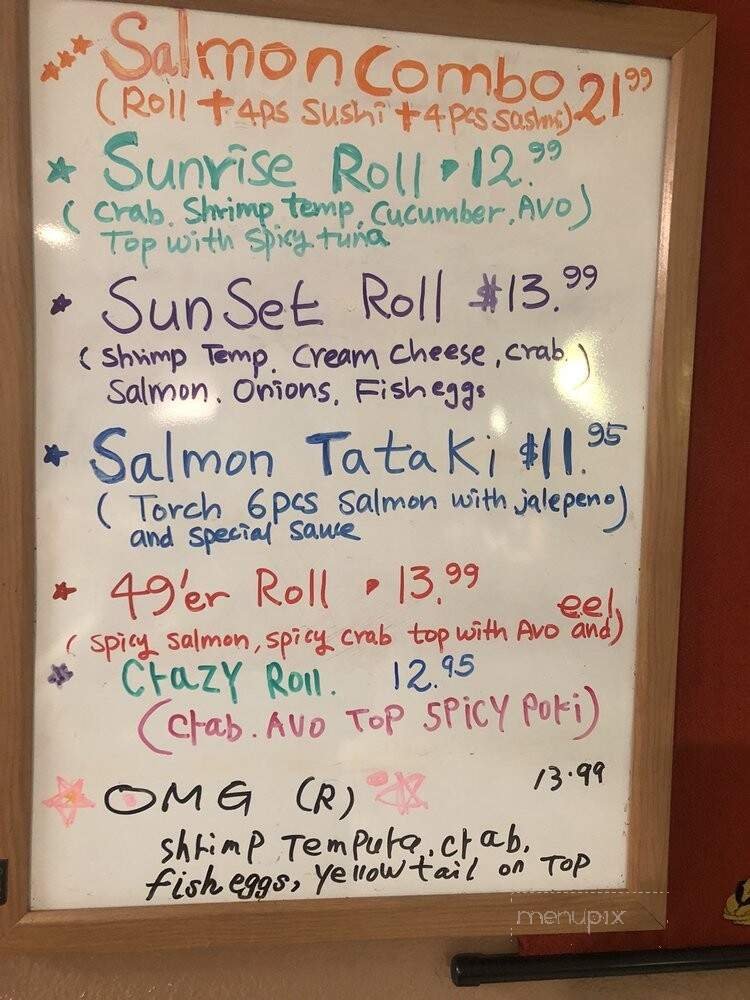 Salmon Combo 21.99
(Roll + 4ps Sushi + 4pcs sashmi)
Sunrise Roll 12.99
(Crab. Shrimp temp, Cucumber, Avo)
Top with spicy tuna
SunSet Roll $13.99
(Shrimp Temp, Cream Cheese, Crab)
Salmon. Onions. Fish eggs
Salmon Tataki $11.95
(Torch 6pcs Salmon with jalepeno)
and special sauce
49'er Roll 13.99
(spicy salmon, spicy crab top with Avo and) eel
Crazy Roll. 12.95
(Crab. AVO TOP SPICY Poki)
OMG (R) 13.99
shrimp Tempura, crab,
fish eggs, Yellowtail on TOP
menupix